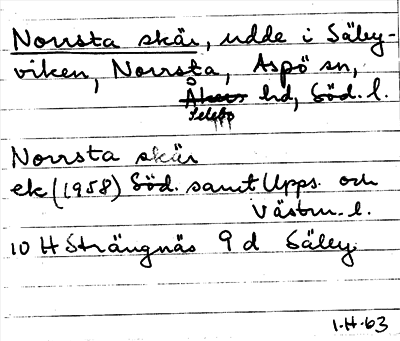 Norrsta skär, udde i Säby-
viken, Norrsta, Aspö sn,
Åkers hd, Söd. l.
Selebo
Norrsta skär
ek (1958) Söd. samt Upps. och
Västm. l.
10 H Strängnäs 9 d Säby.
1.H.63